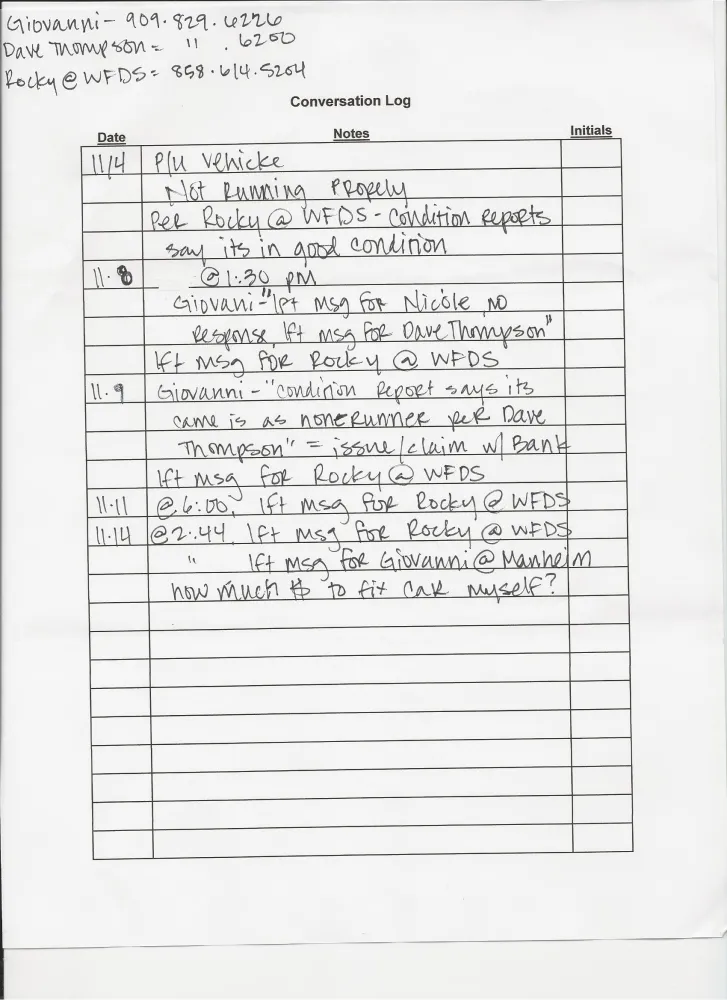 Giovanni - 909.829.6226
Dave Thompson = " . 6200
Rocky @ WFDS = 858.614.5204
Conversation Log
Date Notes Initials
11/4 P/U vehicke
Not Running Propely
Per Rocky @ WFDS - condition reports
say its in good condition
11.8 @ 1:30 PM
Giovani - "lft msg for Nicole, no
response, lft msg for Dave Thompson"
lft msg for Rocky @ WFDS
11.9 Giovanni - "condition report says its
came is as nonerunner per Dave
Thompson" = issue/claim w/ Bank
lft msg for Rocky @ WFDS
11.11 @ 6:00, lft msg for Rocky @ WFDS
11.14 @ 2:44 lft msg for Rocky @ WFDS
" lft msg for Giovanni @ Manheim
how much $ to fix car myself?